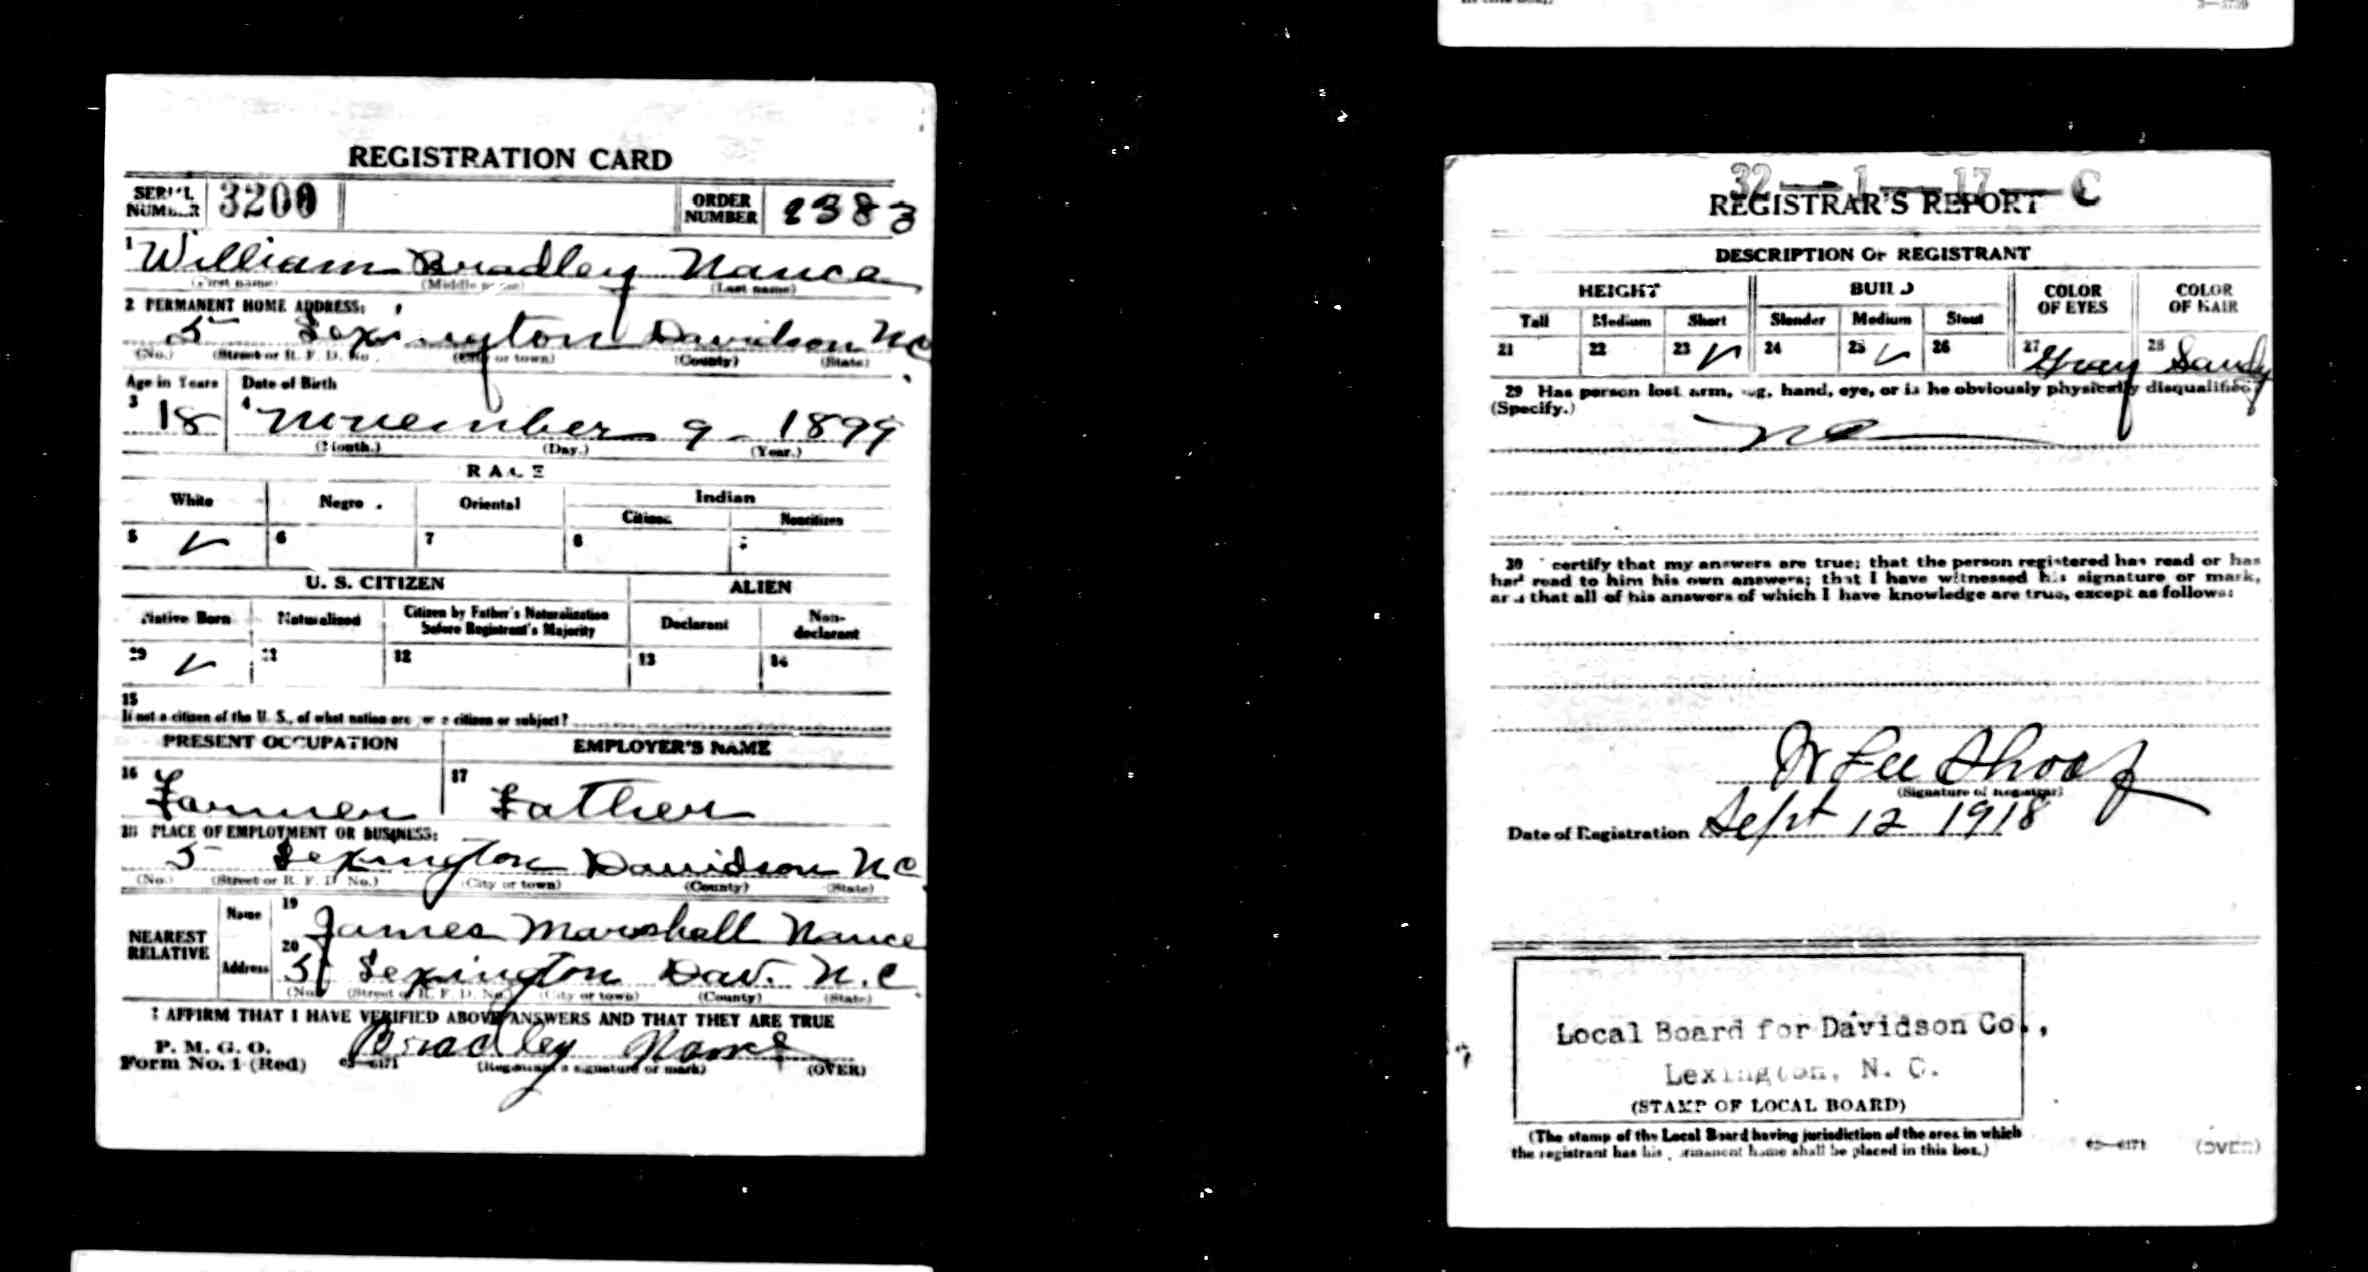 REGISTRATION CARD
SERIAL NUMBER 3200 ORDER NUMBER 2383
1 William Bradley Nance
(First name) (Middle name) (Last name)
2 PERMANENT HOME ADDRESS:
5 Lexington Davidson NC
(No.) (Street or R. F. D. No.) (City or town) (County) (State)
Age in Years Date of Birth
3 18 4 November 9 - 1899
(Month.) (Day.) (Year.)
RACE
White Negro Oriental Indian
Citizen Noncitizen
5 ✓ 6 7 8
U. S. CITIZEN ALIEN
Native Born Naturalized Citizen by Father's Naturalization before Registrant's Majority Declarant Non-declarant
10 ✓ 11 12 13 14
15
If not a citizen of the U. S., of what nation are you a citizen or subject?
PRESENT OCCUPATION EMPLOYER'S NAME
16 Farmer 17 Father
18 PLACE OF EMPLOYMENT OR BUSINESS:
5 Lexington Davidson NC
(No.) (Street or R. F. D. No.) (City or town) (County) (State)
NEAREST RELATIVE
Name 19 James Marshall Nance
Address 20 5 Lexington Dav. N.C
(No.) (Street or R. F. D. No.) (City or town) (County) (State)
I AFFIRM THAT I HAVE VERIFIED ABOVE ANSWERS AND THAT THEY ARE TRUE
P. M. G. O.
Form No. 1 (Red) Bradley Nance
(Registrant's signature or mark) (OVER)
32—1—17—C
REGISTRAR'S REPORT
DESCRIPTION OF REGISTRANT
HEIGHT BUILD COLOR OF EYES COLOR OF HAIR
Tall Medium Short Slender Medium Stout
21 22 23 ✓ 24 25 ✓ 26 27 Gray 28 Sandy
29 Has person lost arm, leg, hand, eye, or is he obviously physically disqualified?
(Specify.)
no
30 I certify that my answers are true; that the person registered has read or has
had read to him his own answers; that I have witnessed his signature or mark,
and that all of his answers of which I have knowledge are true, except as follows:
(Signature of Registrar)
Date of Registration Sept 12 1918
Local Board for Davidson Co.,
Lexington, N. C.
(STAMP OF LOCAL BOARD)
(The stamp of the Local Board having jurisdiction of the area in which
the registrant has his permanent home shall be placed in this box.)
03—6171 (OVER)